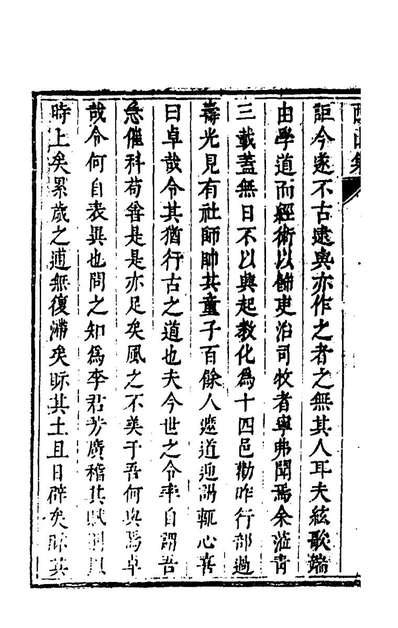 詎今遂不古逮與亦作之者之無其人耳夫絃歌端
由學道而經術以餙吏治司牧者寧弗聞焉余蒞青
三載蓋無日不以興起敎化為十四邑勸咋行部過
壽光見有社師帥其童子百餘人遮道迎謁輒心喜
曰卓哉令其猶行古之道也夫今世之令率自謂吾
急催科苟善是是亦足矣風之不美于吾何與焉卓
哉令何自表異也問之知為李君芳廣稽其賦則
時上矣累歲之逋無復滯矣眎其土且日辟矣眎其